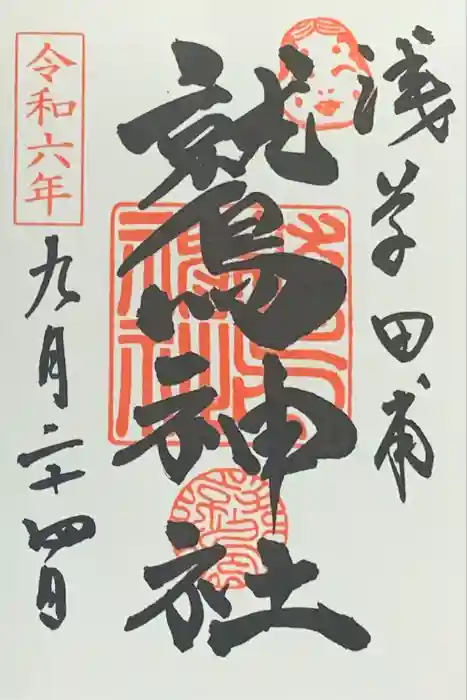 浅草田甫
鷲神社
令和六年
九月二十四日